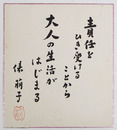 責任を
ひき受ける
ことから
大人の生活が
はじまる
俵萠子